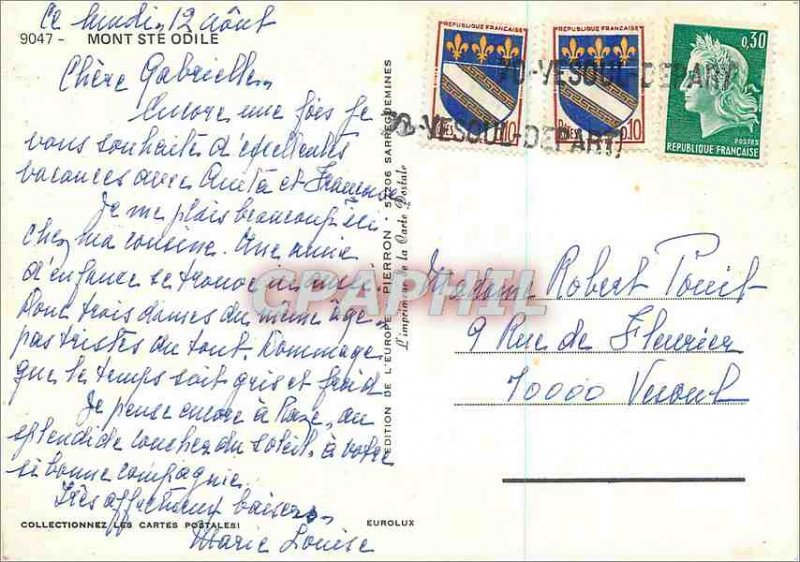 Ce lundi, 12 août
9047 - MONT STE ODILE
Chère Gabrielle,
Encore une fois je
vous souhaite d'excellentes
vacances avec Anita et
Je me plais beaucoup ici
chez ma cousine. Une amie
d'enfance se trouve ici aussi.
Donc trois dames du même âge,
pas tristes du tout. Dommage
que le temps soit gris et froid
Je pense encore à Raze, au
splendide coucher du soleil, à votre
si bonne compagnie.
Très affectueux baisers
Marie Louise
COLLECTIONNEZ LES CARTES POSTALES!
EUROLUX
EDITION DE L'EUROPE PIERRON - 57206 SARREGUEMINES
L'imprimeur de la Carte Postale
REPUBLIQUE FRANÇAISE
TROYES 0,10
REPUBLIQUE FRANÇAISE
TROYES 0,10
0,30
POSTES
REPUBLIQUE FRANÇAISE
70-VESOUL-DEPART
70-VESOUL-DEPART
CPAPHIL
Madame Robert
9 Rue de Fleurier
70000 Vesoul